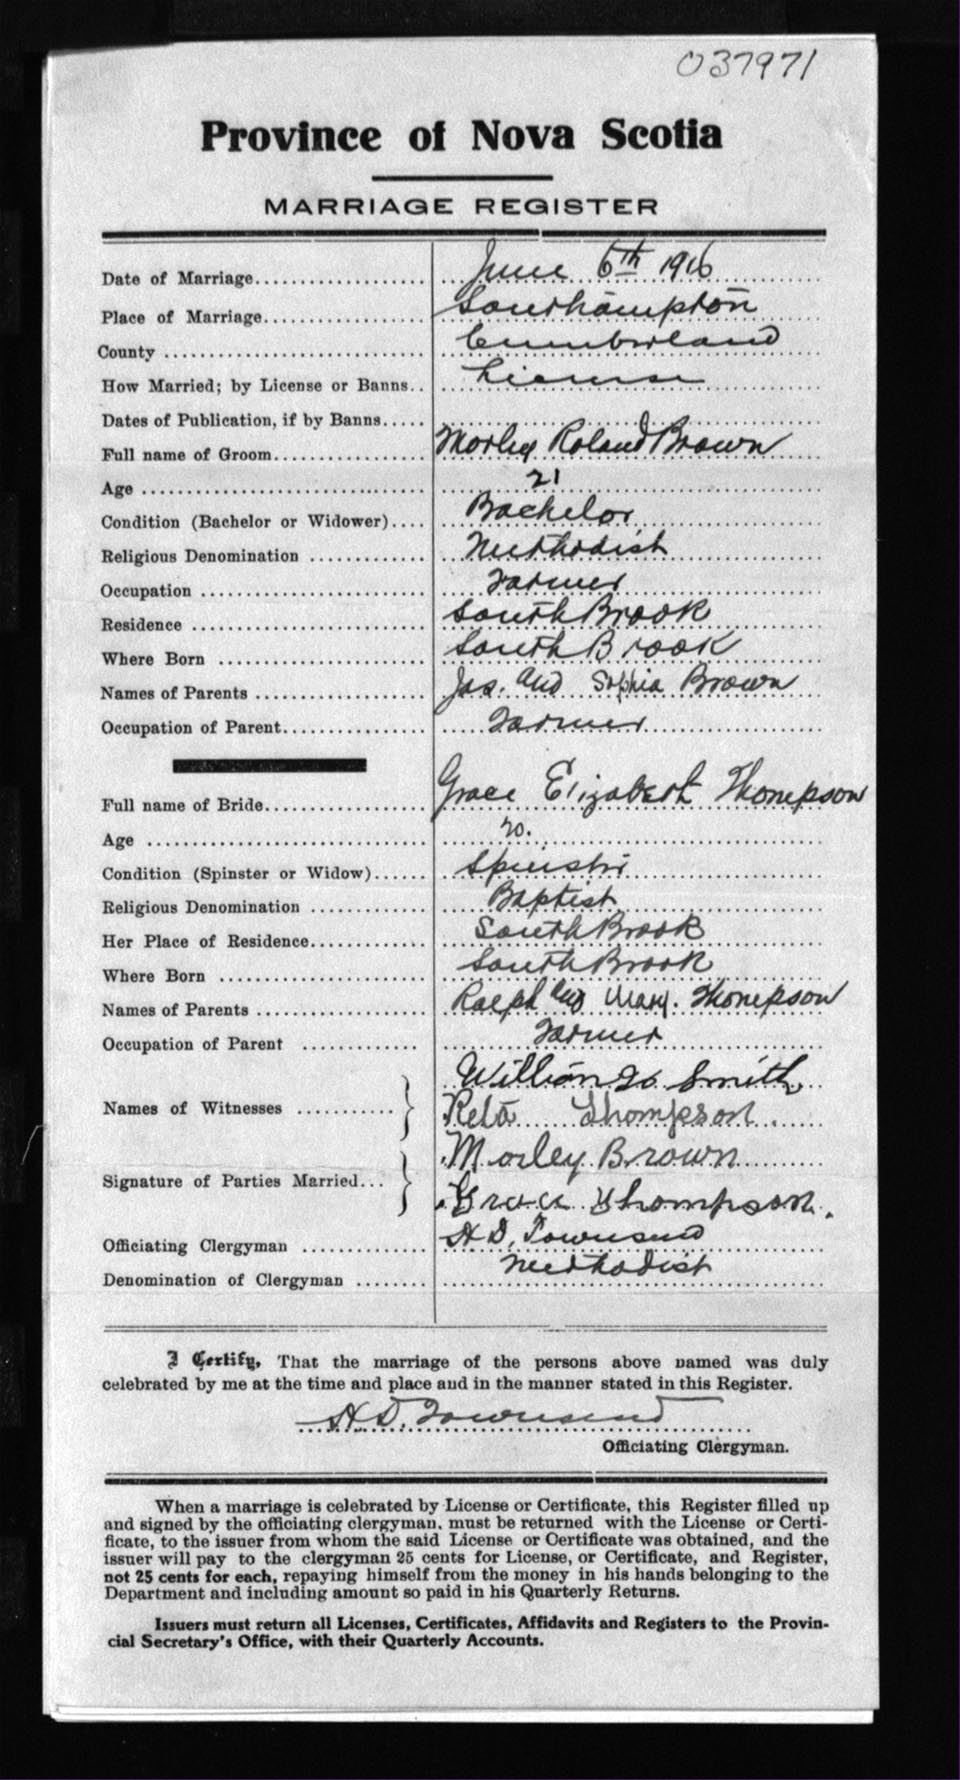 037971
Province of Nova Scotia
MARRIAGE REGISTER
Date of Marriage................... June 6th 1916
Place of Marriage.................. Southampton
County ............................. Cumberland
How Married; by License or Banns.. License
Dates of Publication, if by Banns.....
Full name of Groom................. Morley Roland Brown
Age ............................... 21
Condition (Bachelor or Widower).... Bachelor
Religious Denomination ............. Methodist
Occupation ......................... Farmer
Residence .......................... South Brook
Where Born ........................ South Brook
Names of Parents ................... Jas. and Sophia Brown
Occupation of Parent................ Farmer
Full name of Bride.................. Grace Elizabeth Thompson
Age ............................... 20.
Condition (Spinster or Widow)...... Spinster
Religious Denomination ............. Baptist
Her Place of Residence............. South Brook
Where Born ........................ South Brook
Names of Parents ................... Ralph and Mary. Thompson
Occupation of Parent ............. Farmer
Names of Witnesses ........... William Smith
Reta Thompson
Signature of Parties Married... Morley Brown
Grace Thompson.
Officiating Clergyman .............. H D. Townsend
Denomination of Clergyman ........ Methodist
I Certify, That the marriage of the persons above named was duly
celebrated by me at the time and place and in the manner stated in this Register.
H D. Townsend
Officiating Clergyman.
When a marriage is celebrated by License or Certificate, this Register filled up
and signed by the officiating clergyman. must be returned with the License or Certi-
ficate, to the issuer from whom the said License or Certificate was obtained, and the
issuer will pay to the clergyman 25 cents for License, or Certificate, and Register,
not 25 cents for each, repaying himself from the money in his hands belonging to the
Department and including amount so paid in his Quarterly Returns.
Issuers must return all Licenses, Certificates, Affidavits and Registers to the Provin-
cial Secretary's Office, with their Quarterly Accounts.